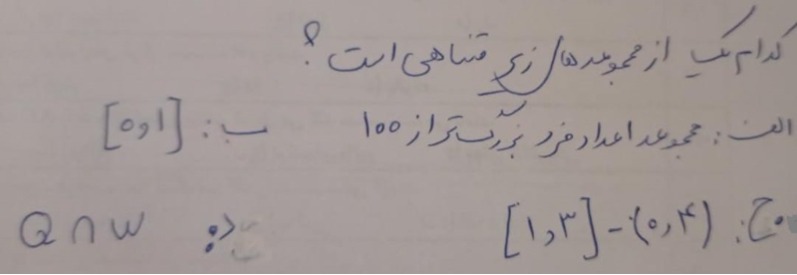 کدام یک از مجموعه های زیر متناهی است؟
الف: مجموعه اعداد فرد بزرگتر از ۱۰۰ ب: [۰,۱]
ج: [۱,۳]-(۰,۴) د: Q ∩ W